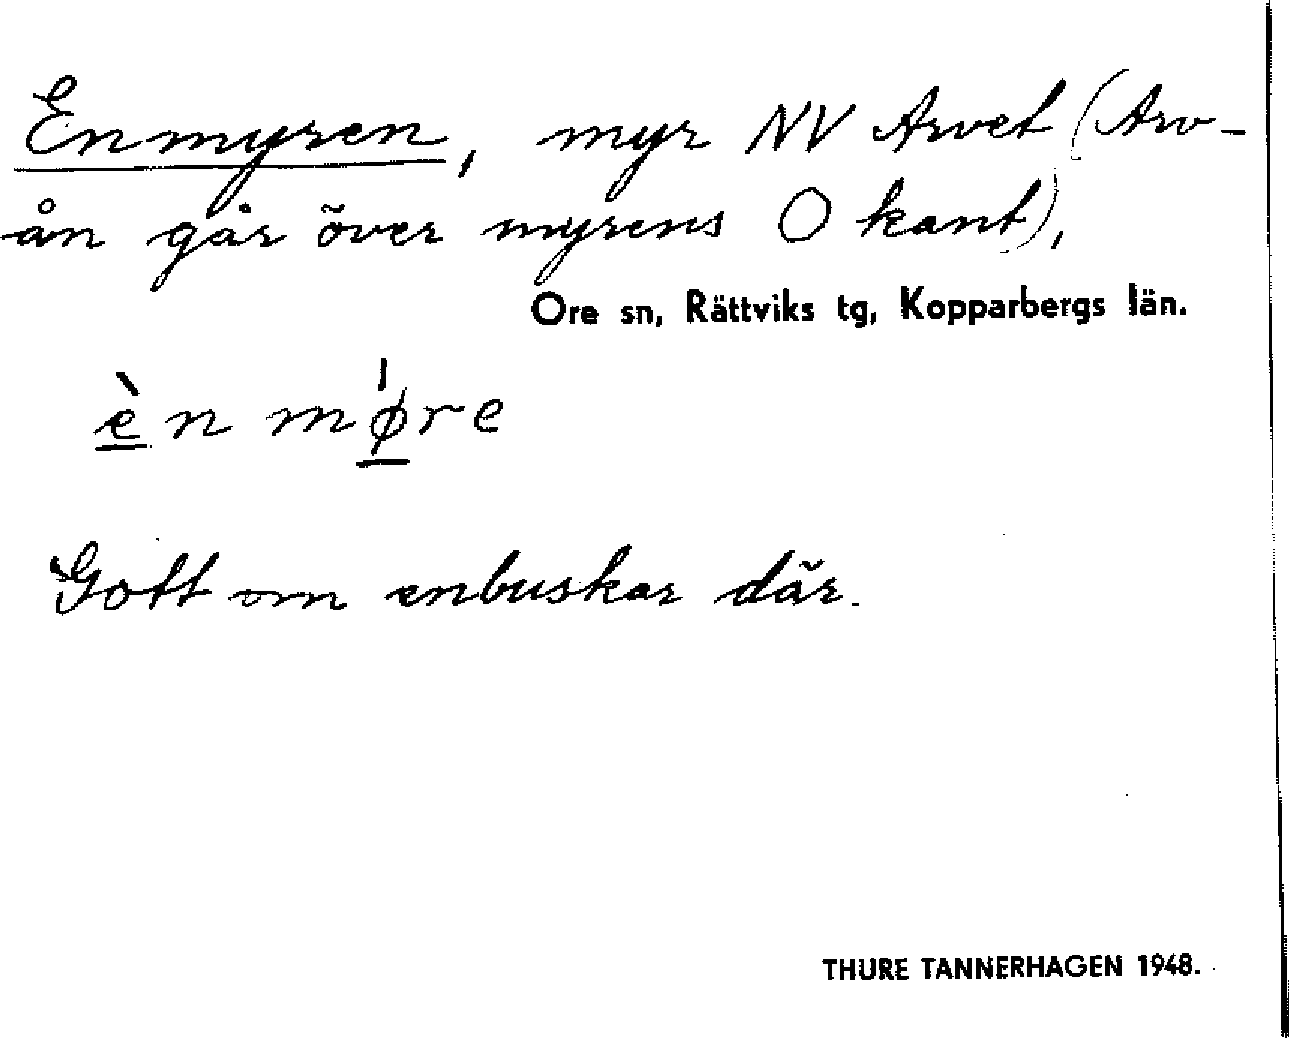 Enmyren, myr NV Arvet (Arv-
ån går över myrens O kant),
Ore sn, Rättviks tg, Kopparbergs län.
è̱n mø̱̍re
Gott om enbuskar där.
THURE TANNERHAGEN 1948.